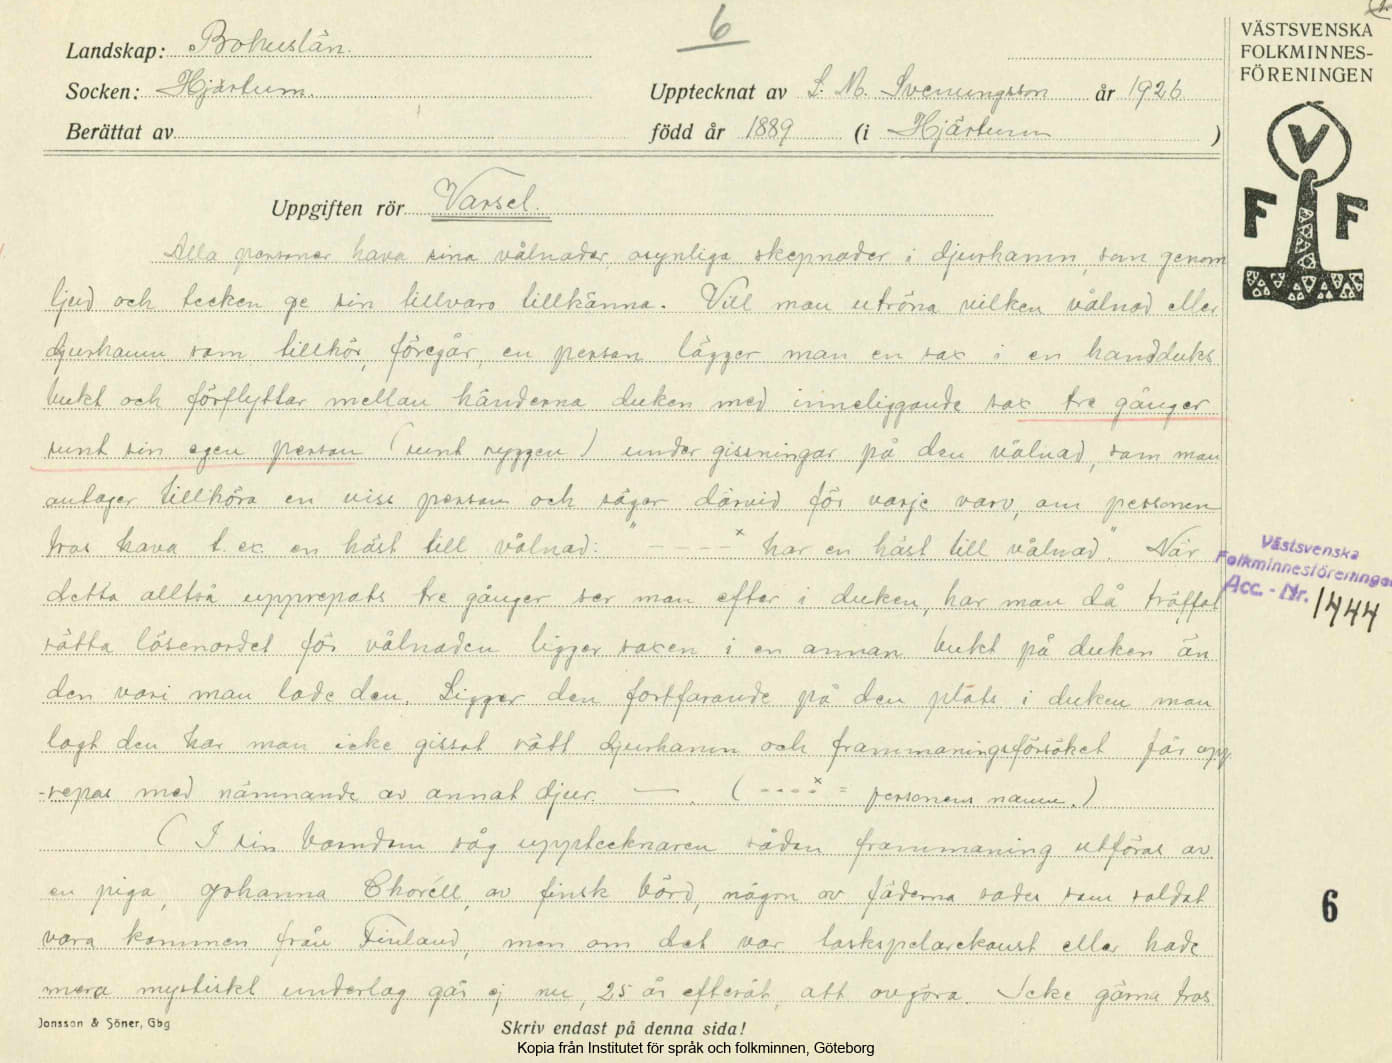 6
Landskap: Bohuslän.
Socken: Hjärtum.
Berättat av
Upptecknat av S. M. Svenungsson år 1926
född år 1889 (i Hjärtum )
VÄSTSVENSKA
FOLKMINNES-
FÖRENINGEN
V
F F
Uppgiften rör Varsel.
Alla personer hava sina vålnader, osynliga skepnader i djurhamn, som genom
ljud och tecken ge sin tillvaro tillkänna. Vill man utröna vilken vålnad eller
djurhamn som tillhör, föregår, en person lägger man en sax i en handduks
bukt och förflyttar mellan händerna duken med inneliggande sax tre gånger
runt sin egen person (runt ryggen) under gissningar på den vålnad, som man
antager tillhöra en viss person och säger därvid för varje varv, om personen
tros hava t. ex. en häst till vålnad: "- - - -x har en häst till vålnad". När
detta alltså upprepats tre gånger ser man efter i duken, har man då träffat
rätta lösenordet för vålnaden ligger saxen i en annan bukt på duken än
den vari man lade den. Ligger den fortfarande på den plats i duken man
lagt den har man icke gissat rätt djurhamn och frammaningsförsöket får upp
-repas med nämnande av annat djur. —. ( - - - -x = personens namn.)
( I sin barndom såg upptecknaren sådan frammaning utföras av
en piga, Johanna Thorell, av finsk börd, någon av fäderna sades som soldat
vara kommen från Finland, men om det var taskspelarekonst eller hade
mera mystiskt underlag går ej nu, 25 år efteråt, att avgöra. Icke gärna tros
Västsvenska
Folkminnesföreningen
Acc. - Nr. 1444
6
Jonsson & Söner, Gbg
Skriv endast på denna sida!
Kopia från Institutet för språk och folkminnen, Göteborg